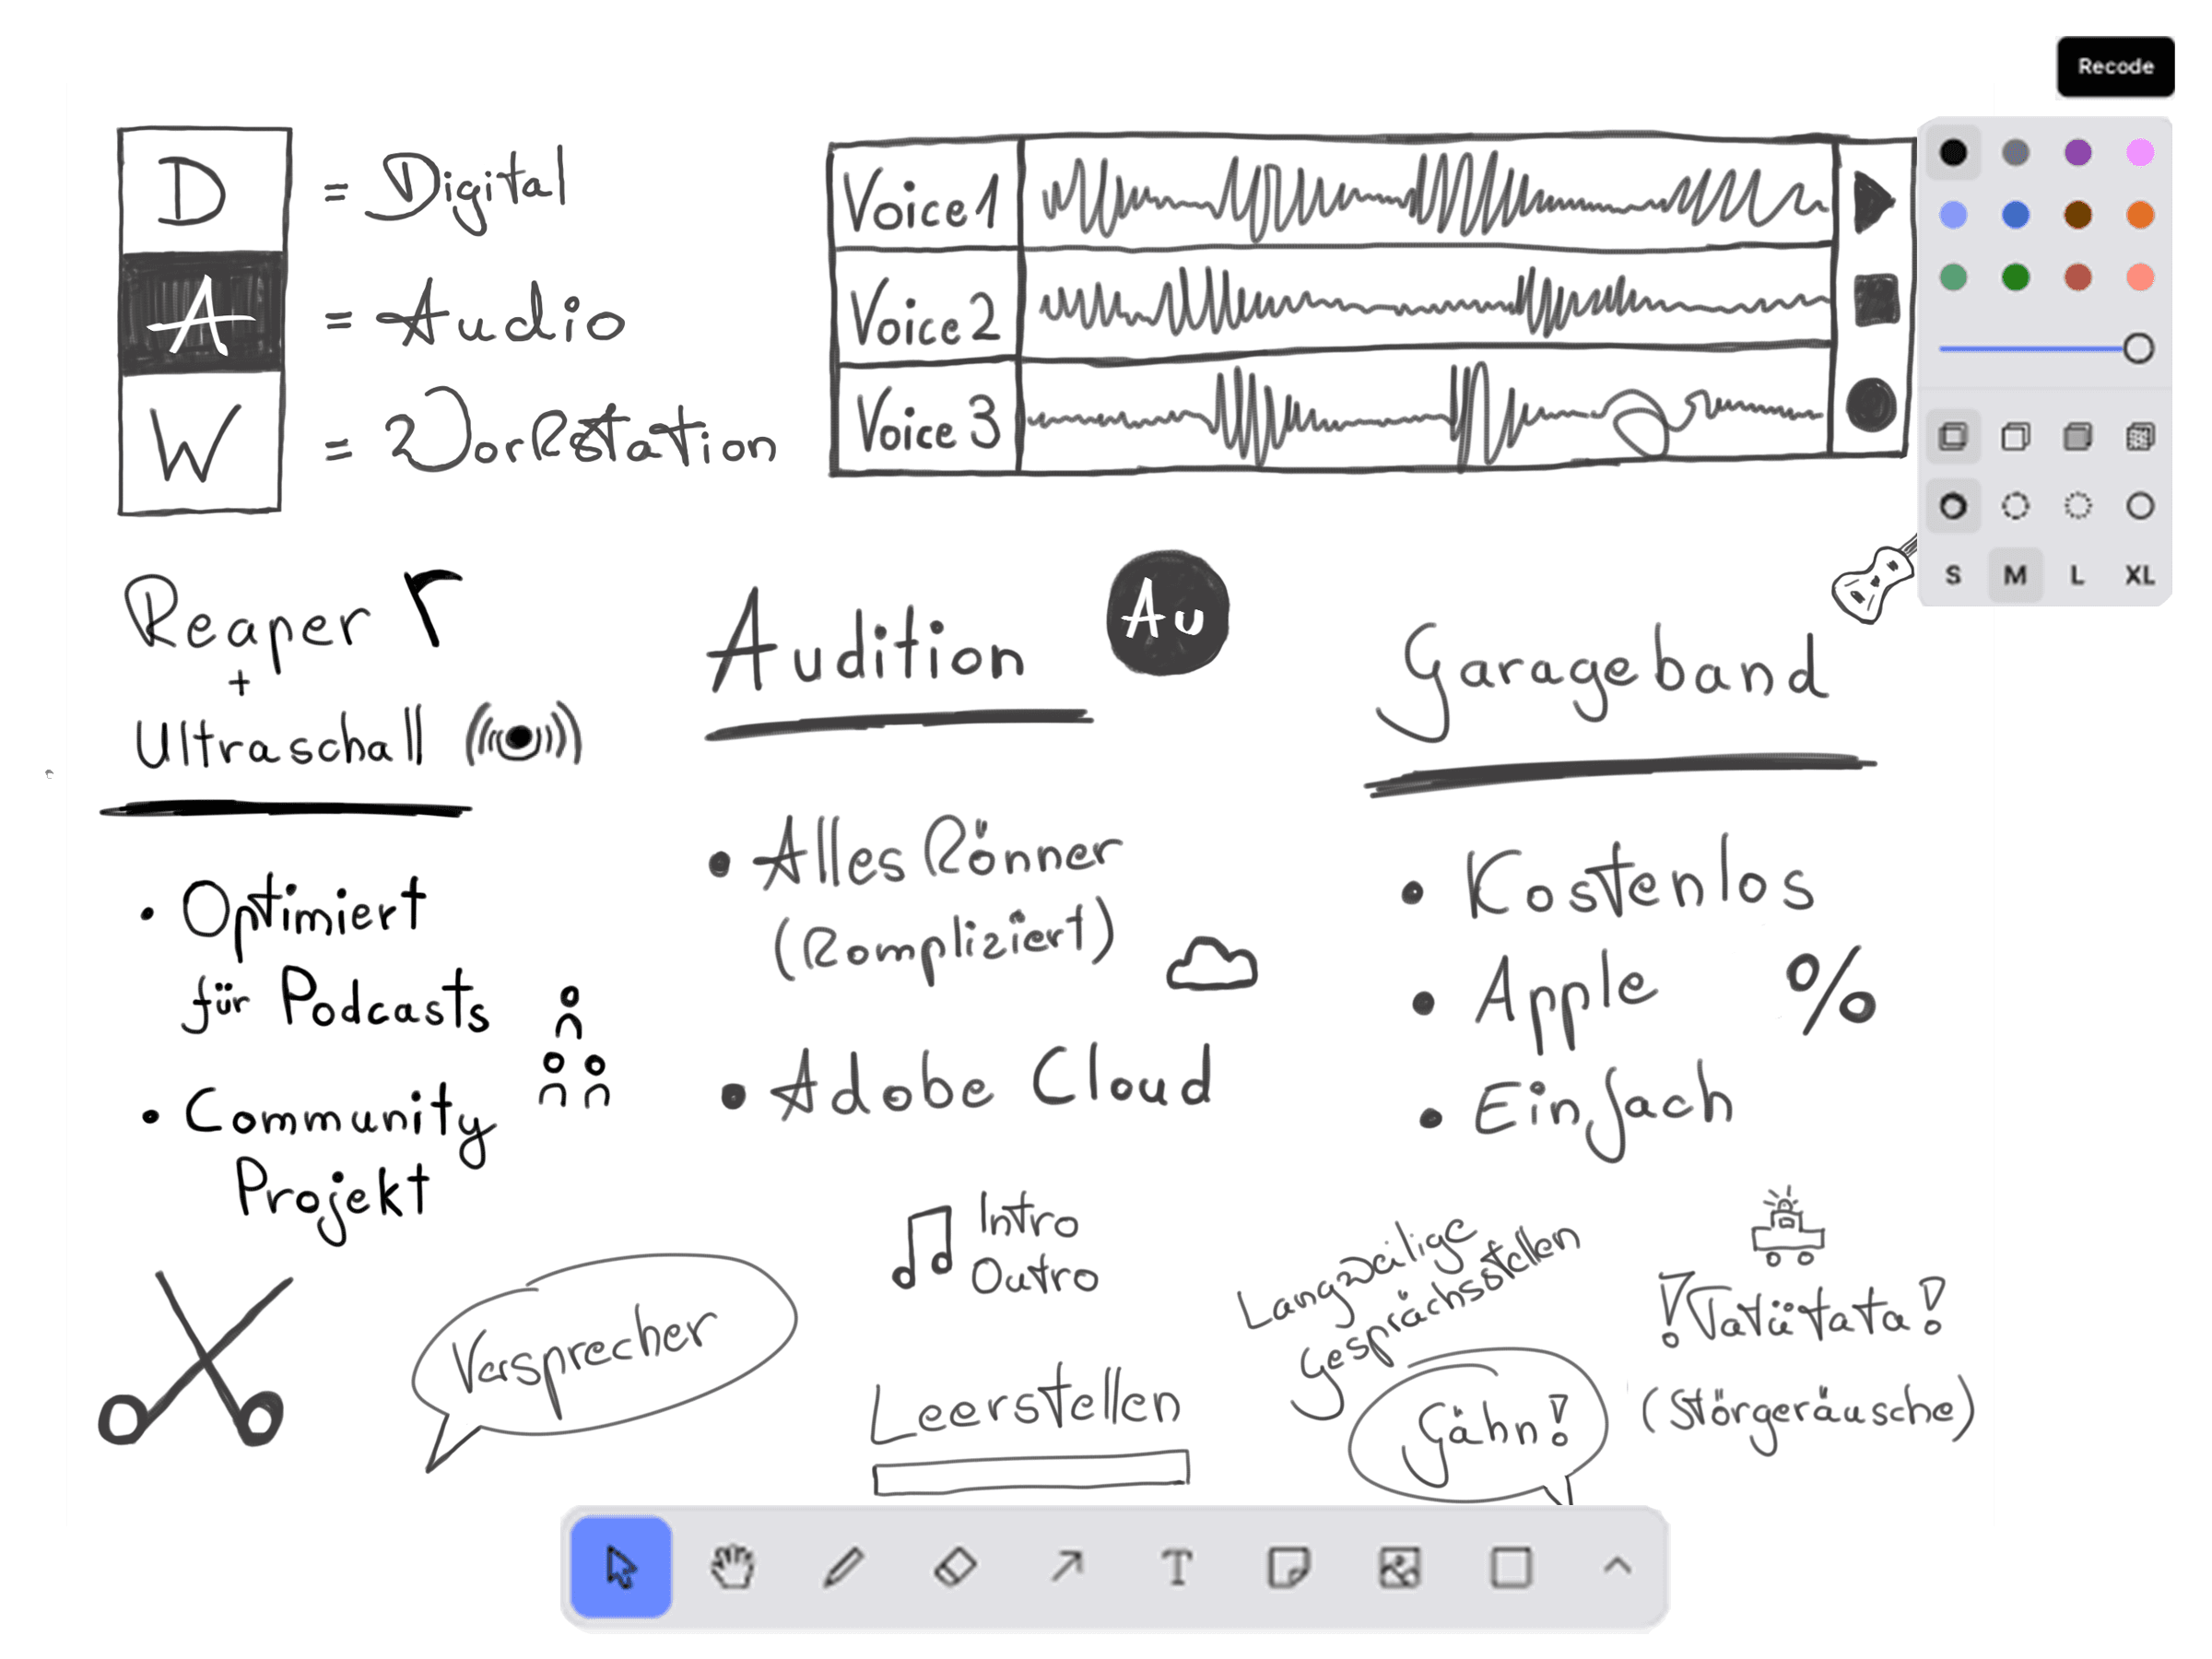 Recode
D = Digital
A = Audio
W = Workstation
Voice 1
Voice 2
Voice 3
S M L XL
Reaper r
+
Ultraschall
• Optimiert
für Podcasts
• Community
Projekt
Audition Au
• Alles Könner
(Kompliziert)
• Adobe Cloud
Garageband
• Kostenlos
• Apple %
• Einfach
Versprecher
Intro
Outro
Leerstellen
Langweilige
Gesprächsstellen
Gähn!
!Tatütata!
(Störgeräusche)
T